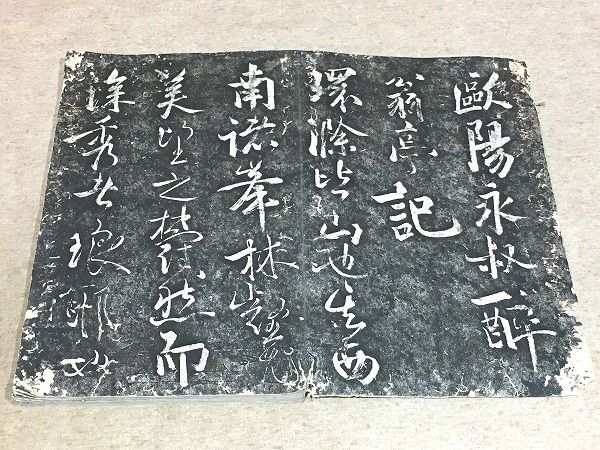 歐陽永叔醉
翁亭記
環滁皆山也其西
南諸峯林壑尤
美望之蔚然而
深秀者琅琊也